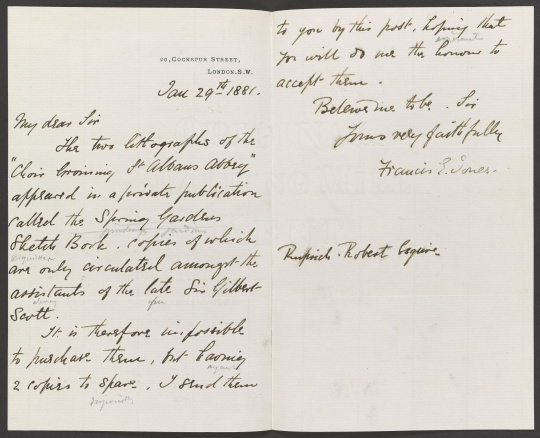 20, COCKSPUR STREET,
LONDON. S.W.
Jan 29th 1881.
My dear Sir
The two lithographs of the
"Choir Groining St Albans Abbey"
appeared in a private publication
called the Spring Gardens
Sketch Book. copies of which
are only circulated amongst the
assistants of the late Sir Gilbert
Scott.
It is therefore impossible
to purchase them, but having
2 copies to spare, I send them
to you by this post, hoping that
you will do me the honour to
accept them.
Believe me to be. Sir
Yours very faithfully
Francis Jones.
Robert Esquire